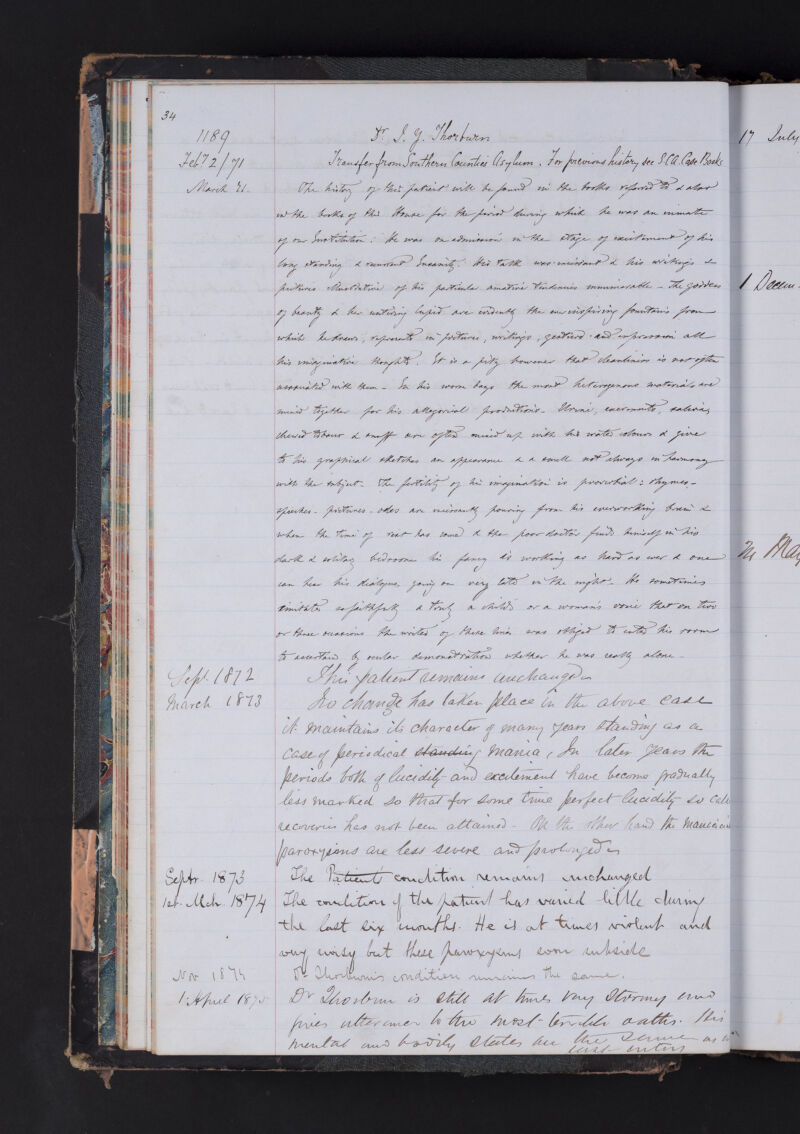 34
1189
Dr. J. Y. Thorburn
Feb 2/71
Transfer from Southern Counties Asylum. For previous history see S.C.A. Case Book
March 71.
The history of this patient will be found in the books referred to & also
in the books of this House for the period during which he was an inmate
of our Institution: He was on admission in the stage of excitement of his
long standing & recurrent Insanity. His talk was incessant & his writings &
pictures illustrative of his particular amative tendencies innumerable - the goddess
of beauty & her untiring Cupid are evidently the inspiring fountains from
which he draws, represents in pictures, writings, gestures and expression all
his imaginative thoughts. It is a pity however that cleanliness is not often
associated with them - In his worn bags the most heterogenous materials are
mixed together for his allegorical productions. Urine, excrements, saliva,
chewed tobacco & snuff are often mixed up with his water colours & give
to his graphical sketches an appearance & a smell not always in harmony
with the subject. The fertility of his imagination is proverbial: rhymes -
speeches - pictures - odes are incessantly pouring from his overworking brain &
when the time of rest has come & the poor doctor finds himself in his
dark & solitary bedroom his fancy is working as hard as ever & one
can hear his dialogues going on very late in the night. He sometimes
imitates so faithfully & truly a child's or a woman's voice that on two
or three occasions the writer of these lines was obliged to enter his room
to ascertain by ocular demonstration whether he was really alone -
Sept. 1872
This patient remains unchanged
March 1873
No change has taken place in the above case
it maintains its character of many years standing as a
case of periodical standing mania, In later years the
periods both of lucidity and excitement have become gradually
less marked so that for some time perfect lucidity so called
recoveries has not been attained - On the other hand the maniacal
paroxysms are less severe and prolonged
Septr. 1873
The Patients condition remains unchanged
1st Mch. 1874
The condition of the patient has varied little during
the last six months. He is at times violent and
very noisy but these paroxysms soon subside
Nov 1874
Dr Thorburn's condition remains the same.
1 April 1875
Dr Thorburn is still at times very stormy and
gives utterance to the most terrible oaths. His
mental and bodily states are the same as in
last entry
17 July
1 Decem
May